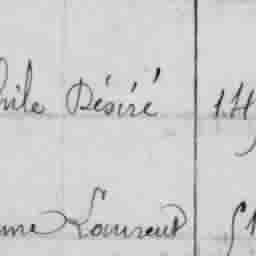 hile Désiré 1.H
me Laurent